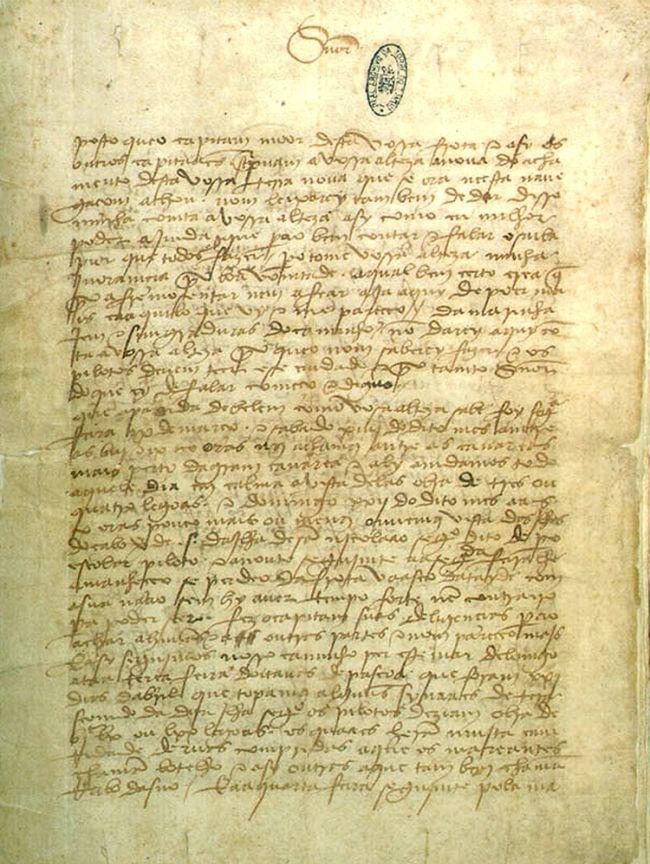 Snor
posto que o capitam moor desta vossa frota e asy os
outros capitaães screpuam a vossa alteza a noua do acha
mento desta vossa terra noua que se ora neesta naue
gaçom achou. nom leixarey tambem de dar disso
minha comta a vossa alteza asy como eu milhor
poder ajmda que pera o bem contar e falar o saiba
pior que todos fazer. pero tome vossa alteza minha
jnoramçia por boa vomtade. a qual bem çerto crea q̃
por afremosentar nem afear aja aquy de poer ma
is ca aquilo que vy e me pareçeo / da marinha
jem e simgraduras do caminho nõ darey aquy cõ
ta a vossa alteza por que o nom saberey fazer e os
pilotos deuem teer ese cuidado e por tamto Snor
do que ey de falar começo e diguo /
que a partida de belem como vosa alteza sabe foy seg.ª
feira ix de março. e sabado xiiij do dito mes amtre
as biij e ix oras nos achamos amtre as canareas
mais perto da gram canarea e aly amdamos todo
aquele dia em calma a vista delas obra de tres ou
quatro legoas. e domingo xxij do dito mes aas
x oras pouco mais ou menos ouuemos vista das jlhas
do cabo verde .s. da jlha de sã njcolaao seg.º dito de p.º
escolar piloto. e a noute segujmte aa seg.ª feira lhe
amanheçeo se perdeo da frota vaasco datayde com
a sua naao sem hy auer tempo forte nẽ contrairo
pera poder seer. fez o capitam suas deligençias pera o
achar a huũas e a outras partes e nom pareçeo majs
E asy segujmos nosso caminho per este mar de lomgo
ataa terça feira doitauas de pascoa que foram xxj
dias dabril que topamos alguũs synaaes de tera
seemdo da dita jlha seg.º os pilotos deziam obra de
bj c lx ou lxx legoas. os quaaes herã mujta cam
tidade deruas compridas a que os mareantes
chamã botelho e asy outras a que tambem chamã
Rabo dasno / E aa quarta feira segujmte pola ma